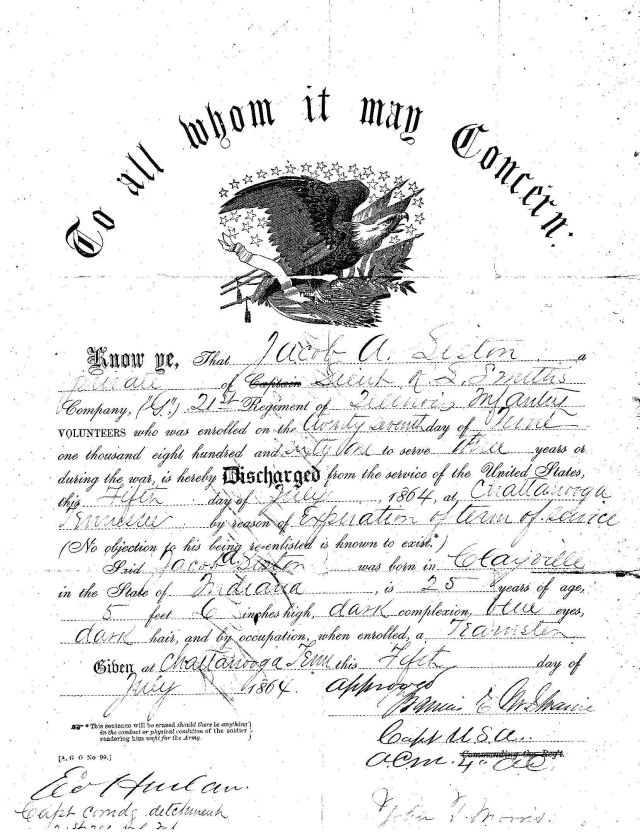 To all whom it may Concern:
Know ye, That Jacob A. Siston a
private of Captain Lieut R. S. Smiths
Company, ("G") 21st Regiment of Illinois Infantry
VOLUNTEERS who was enrolled on the twenty seventh day of June
one thousand eight hundred and sixty one to serve three years or
during the war, is hereby Discharged from the service of the United States,
this Fifth day of July, 1864, at Chattanooga
Tennessee by reason of Expiration of term of service
(No objection to his being re-enlisted is known to exist.*)
Said Jacob A Siston was born in Clayville
in the State of Indiana, is 25 years of age,
5 feet 6 inches high, dark complexion, blue eyes,
dark hair, and by occupation, when enrolled, a Teamster
Given at Chattanooga Tenn this Fifth day of
July 1864. approved
* This sentence will be erased should there be anything
in the conduct or physical condition of the soldier
rendering him unfit for the Army.
Capt U.S.A.
[A. G. O No 99.]
A.C.M. 4" A.C.
Commanding the Reg't.
Ed Harlan.
Capt comdg detchment
John T. Morris.